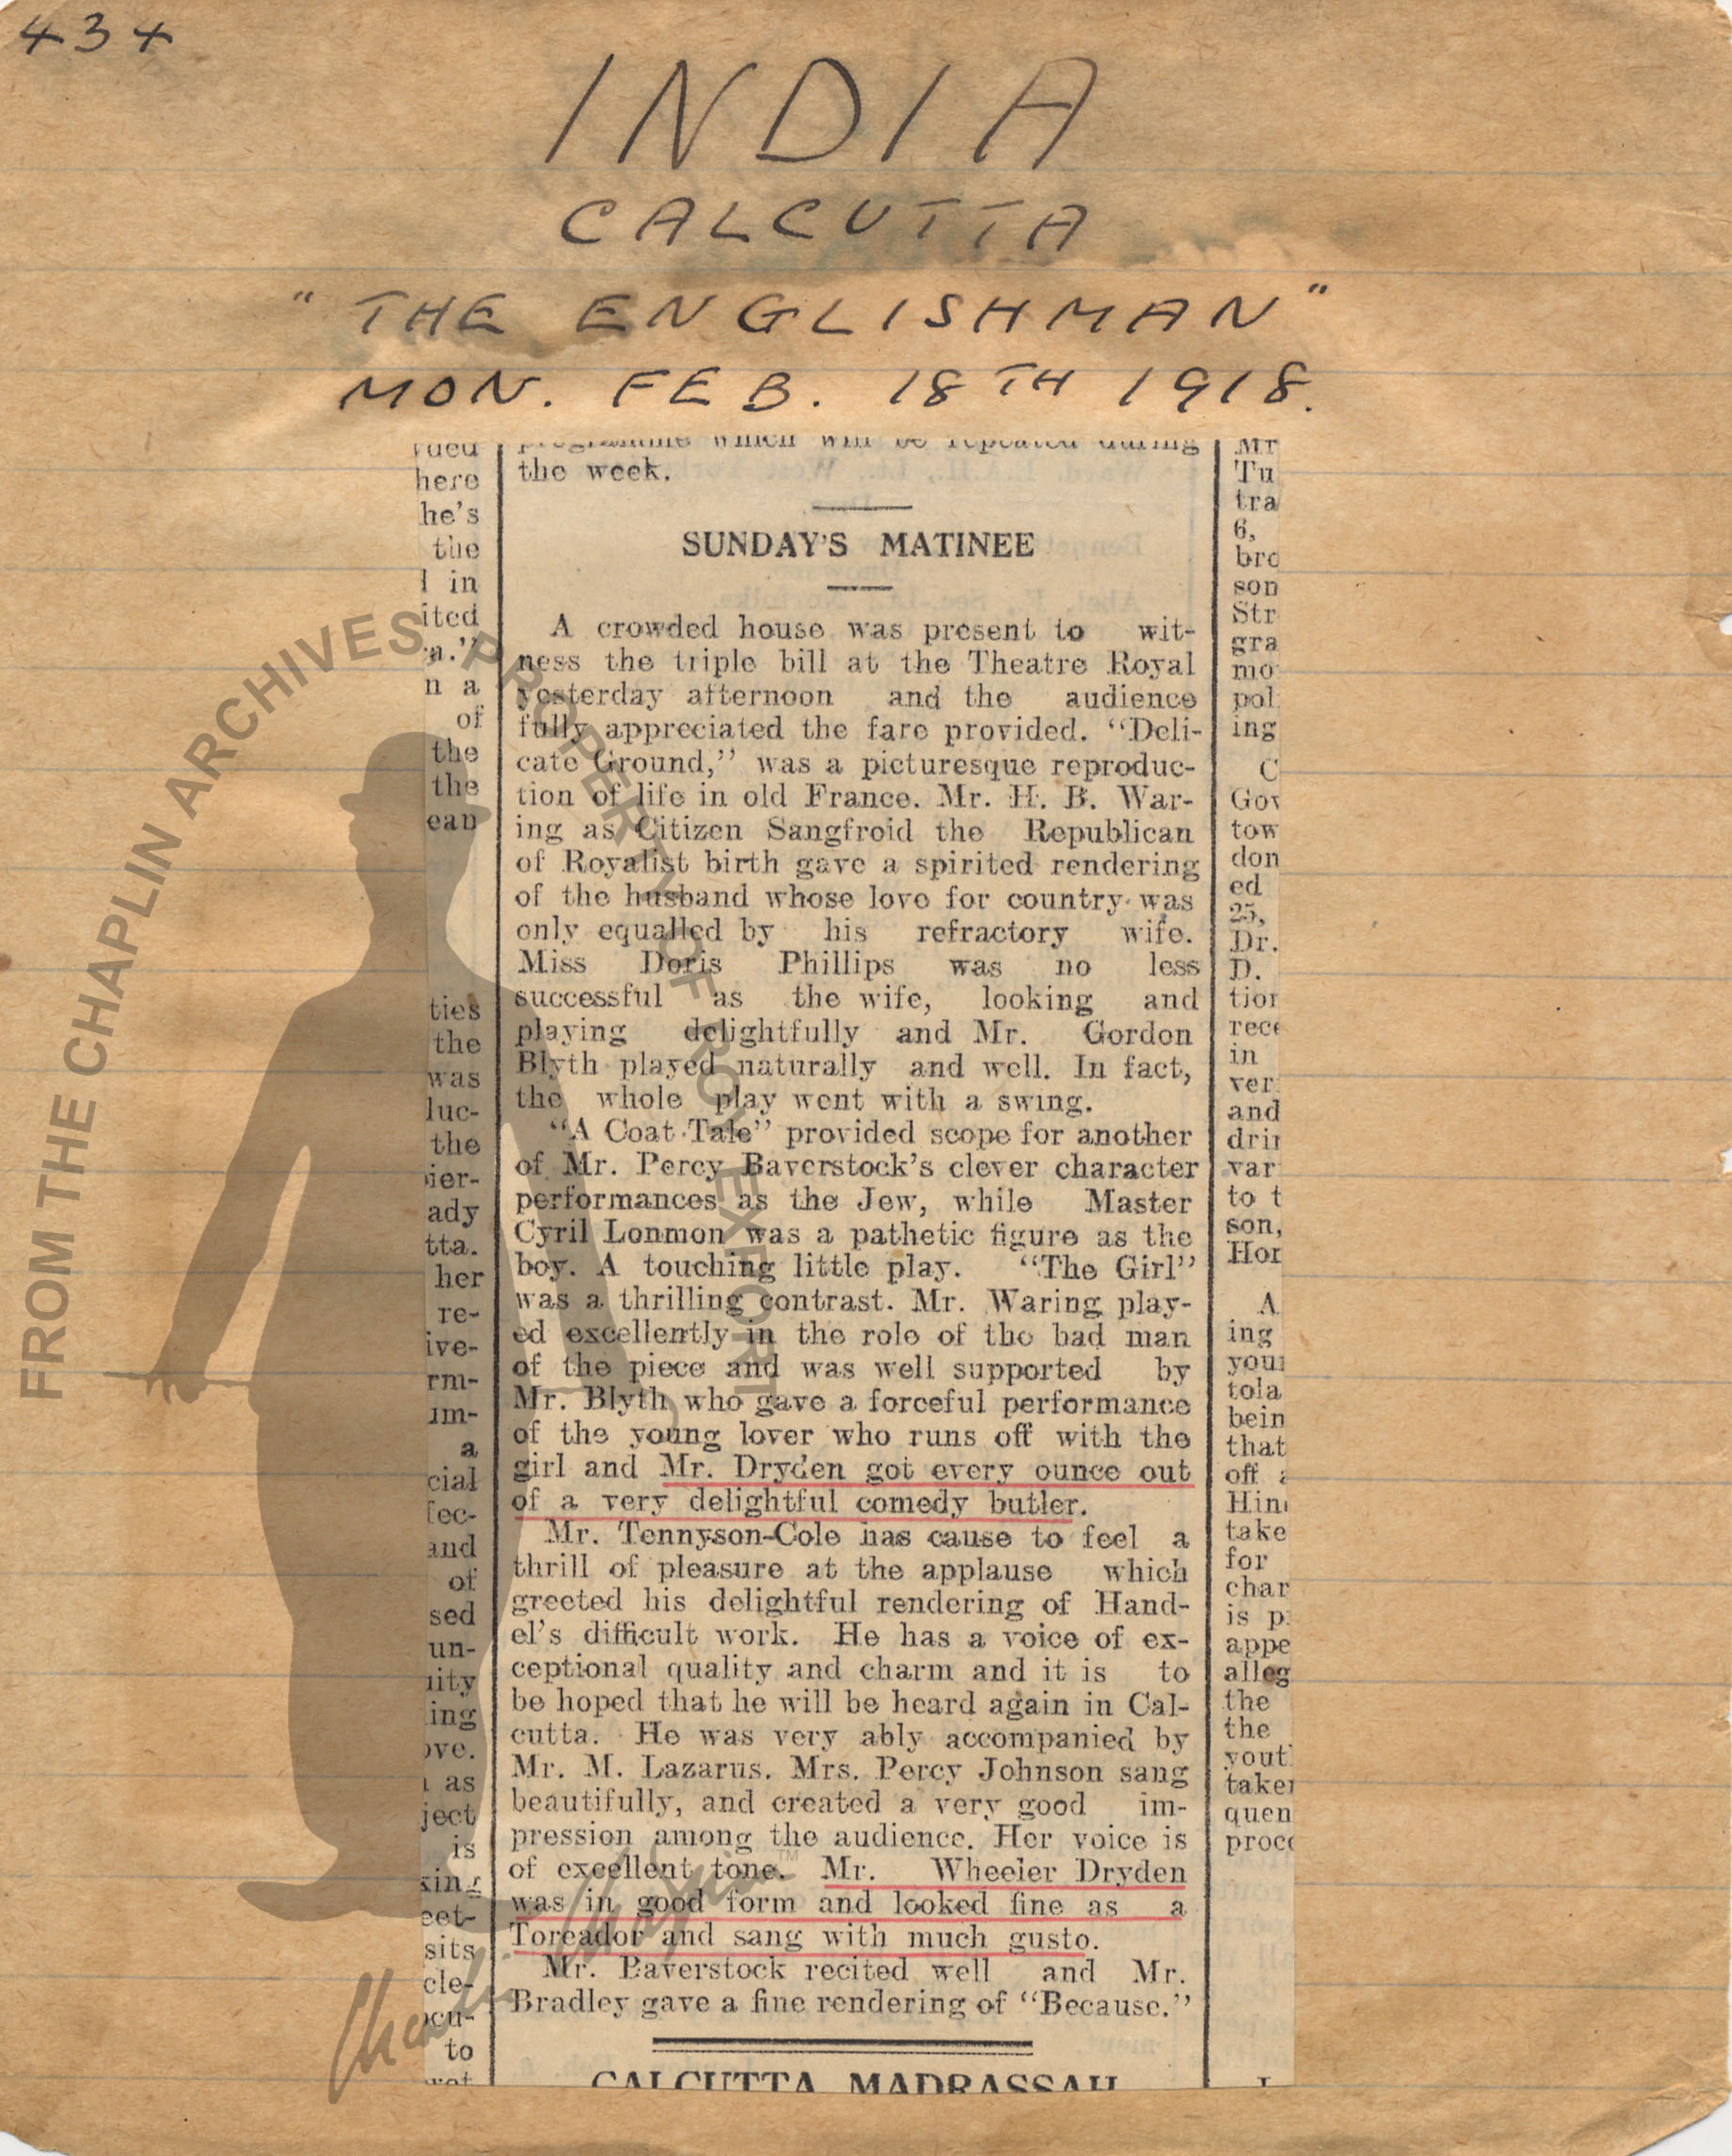 434
INDIA
CALCUTTA
"THE ENGLISHMAN"
MON. FEB. 18TH 1918.
programme which will be repeated during
the week.
SUNDAY'S MATINEE
A crowded house was present to wit-
ness the triple bill at the Theatre Royal
yesterday afternoon and the audience
fully appreciated the fare provided. "Deli-
cate Ground," was a picturesque reproduc-
tion of life in old France. Mr. H. B. War-
ing as Citizen Sangfroid the Republican
of Royalist birth gave a spirited rendering
of the husband whose love for country was
only equalled by his refractory wife.
Miss Doris Phillips was no less
successful as the wife, looking and
playing delightfully and Mr. Gordon
Blyth played naturally and well. In fact,
the whole play went with a swing.
"A Coat Tale" provided scope for another
of Mr. Percy Baverstock's clever character
performances as the Jew, while Master
Cyril Lonmon was a pathetic figure as the
boy. A touching little play. "The Girl"
was a thrilling contrast. Mr. Waring play-
ed excellently in the role of the bad man
of the piece and was well supported by
Mr. Blyth who gave a forceful performance
of the young lover who runs off with the
girl and Mr. Dryden got every ounce out
of a very delightful comedy butler.
Mr. Tennyson-Cole has cause to feel a
thrill of pleasure at the applause which
greeted his delightful rendering of Hand-
el's difficult work. He has a voice of ex-
ceptional quality and charm and it is to
be hoped that he will be heard again in Cal-
cutta. He was very ably accompanied by
Mr. M. Lazarus. Mrs. Percy Johnson sang
beautifully, and created a very good im-
pression among the audience. Her voice is
of excellent tone. Mr. Wheeler Dryden
was in good form and looked fine as a
Toreador and sang with much gusto.
Mr. Baverstock recited well and Mr.
Bradley gave a fine rendering of "Because."
CALCUTTA MADRASSAH
FROM THE CHAPLIN ARCHIVES PROPERTY OF ROY EXPORT
Charlie Chaplin TM